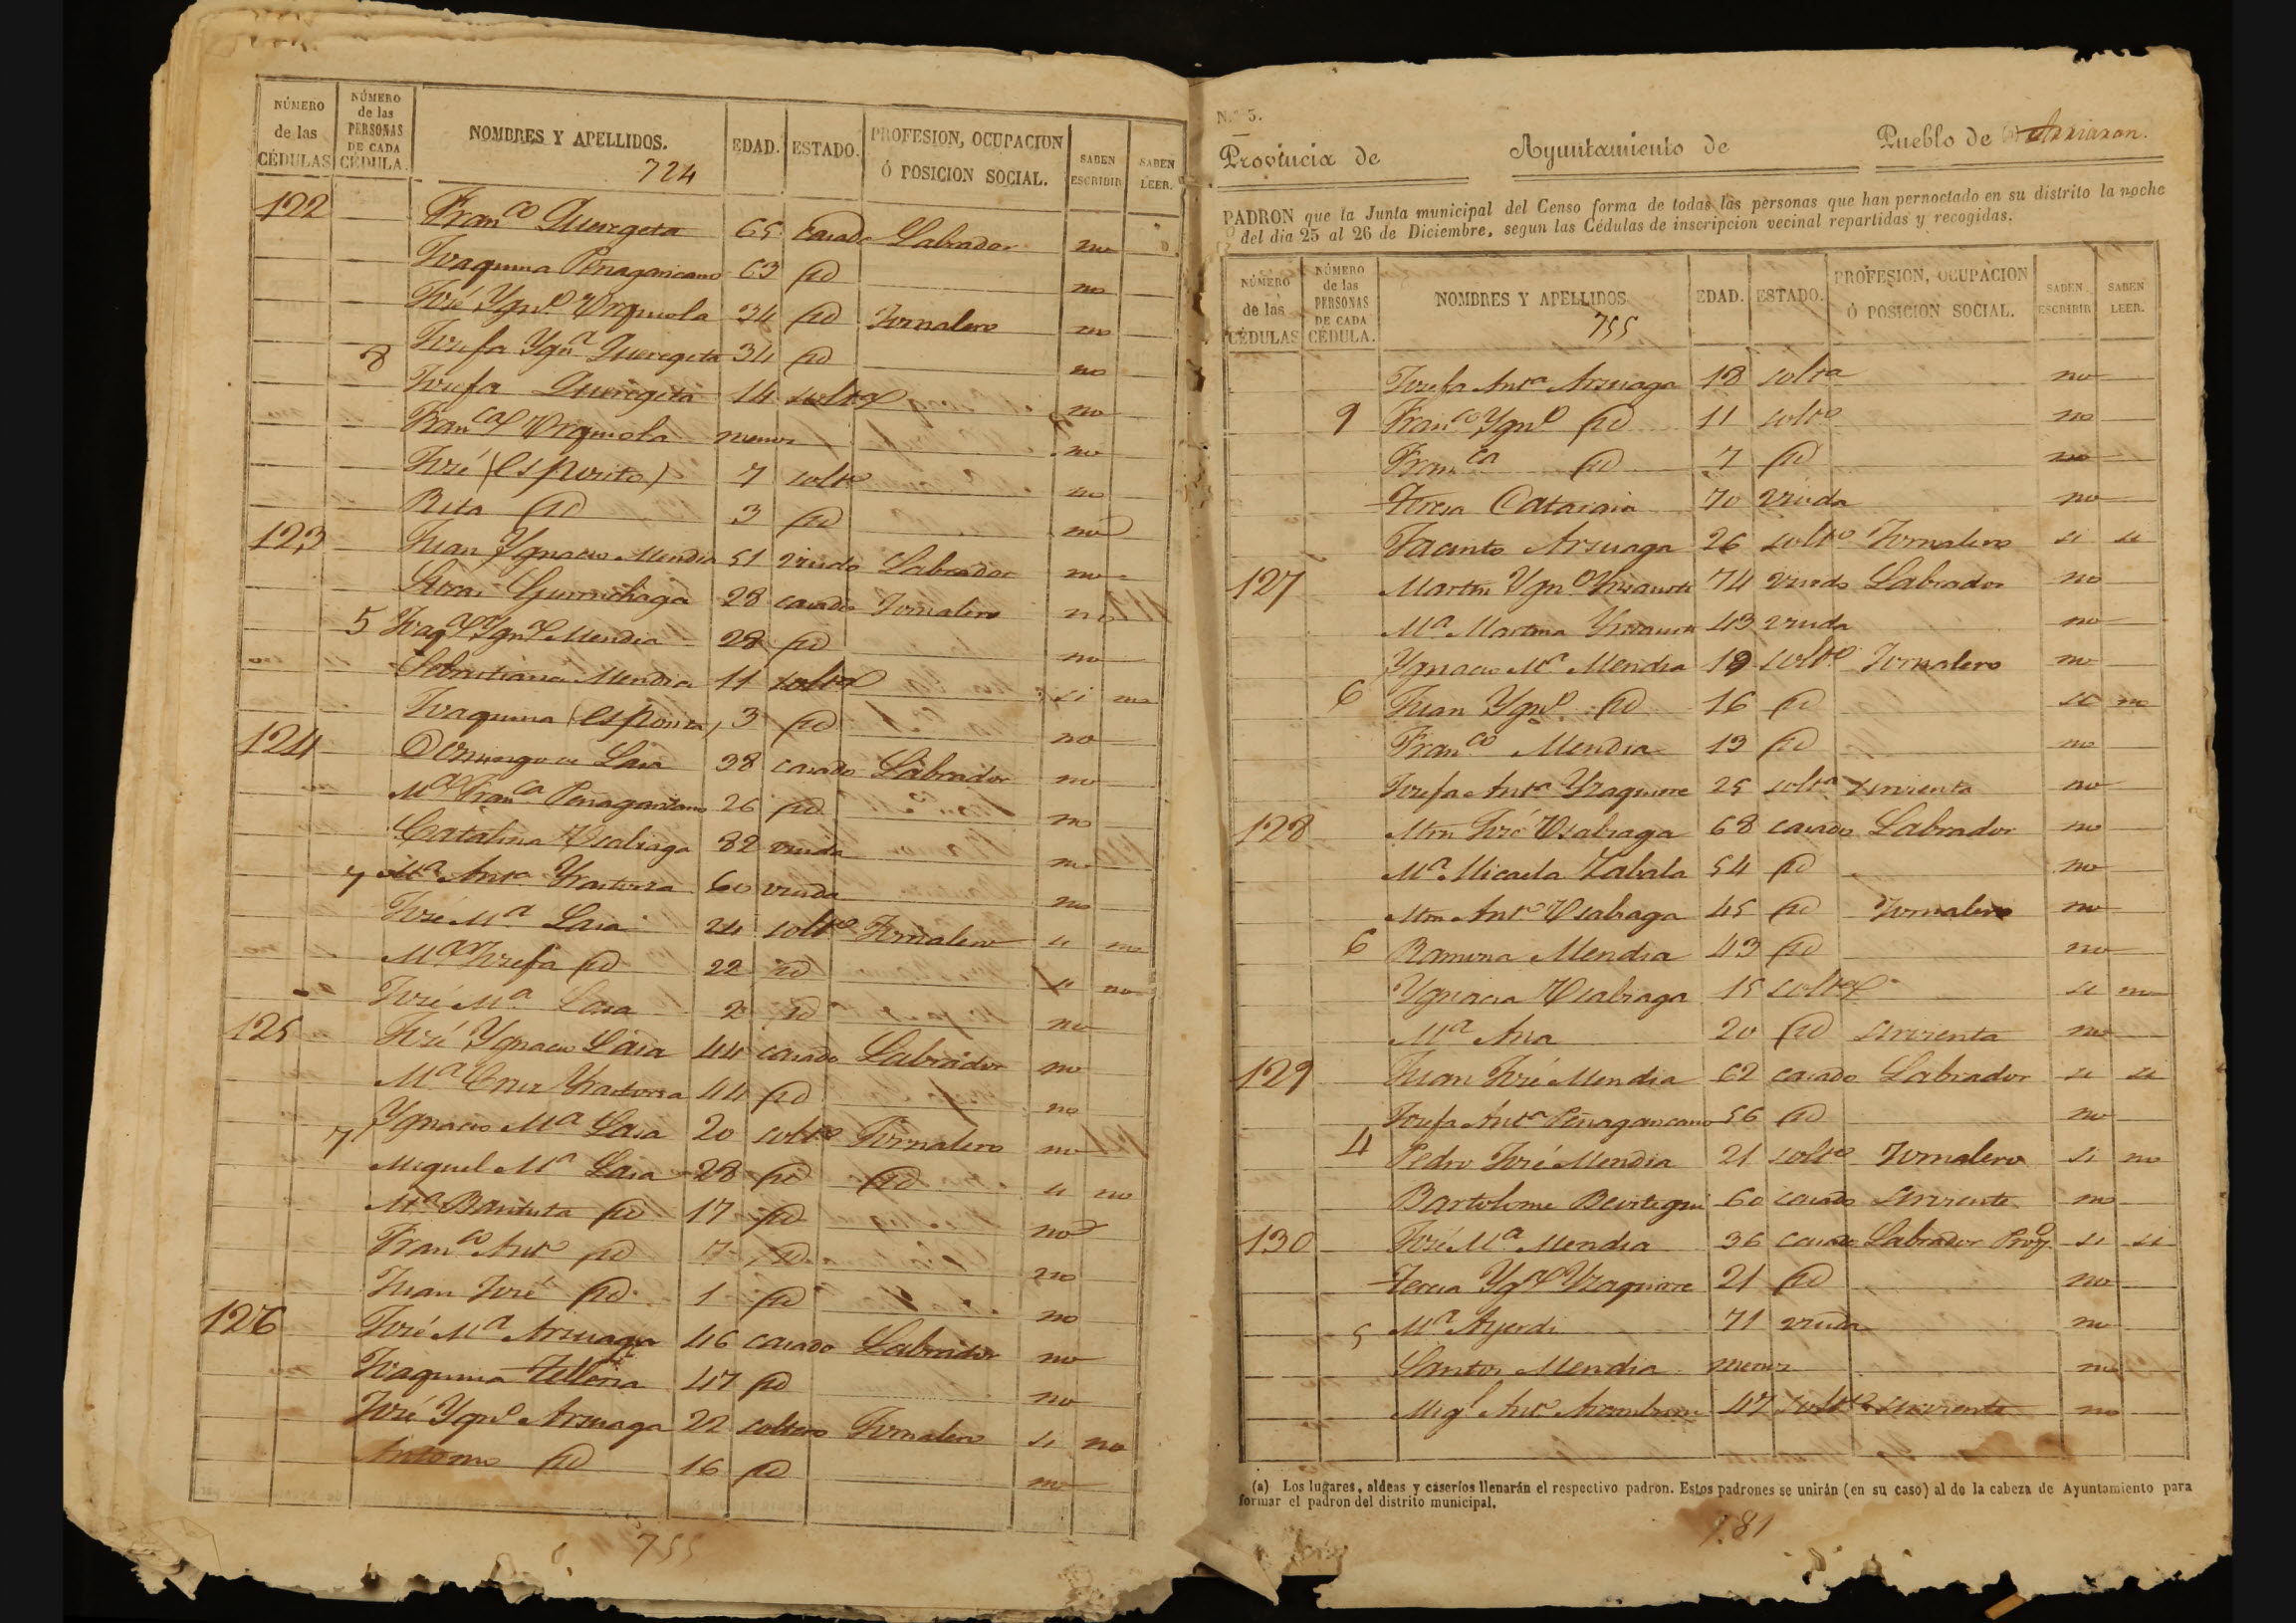 NÚMERO de las CÉDULAS NÚMERO de las PERSONAS DE CADA CÉDULA. NOMBRES Y APELLIDOS. EDAD. ESTADO. PROFESION, OCUPACION Ó POSICION SOCIAL. SABEN ESCRIBIR SABEN LEER.
724
122 Fran.co Queregeta 65 casado Labrador no
Joaquina Penagaricano 63 id no
José Ygn.o Urquiola 34 id Jornalero no
8 Josefa Ygn.a Queregeta 34 id no
Josefa Queregeta 14 solt.a no
Fran.ca Urquiola menor no
José (esposito) 7 solt.o no
Rita id 3 id no
123 Juan Ygnacio Mendia 51 viudo Labrador no
Gurruchaga 28 casado Jornalero no
5 Joaq.a Ygn.a Mendia 28 id no
Sebastiana Mendia 11 solt.a si no
Joaquina (esposita) 3 id no
124 Domingo Lasa 38 casado Labrador no
M.a Fran.ca Penagaricano 26 id no
Catalina Usabiaga 82 viuda no
7 M.a Ant.a Yrastorza 60 viuda no
José M.a Lasa 24 solt.o Jornalero si no
M.a Josefa id 22 id si no
José M.a Lasa 2 id no
125 José Ygnacio Lasa 44 casado Labrador no
M.a Cruz Yrastorza 44 id no
7 Ygnacio M.a Lasa 20 solt.o Jornalero no
Miguel M.a Lasa 28 id id si no
M.a Bautista id 17 id no
Fran.co Ant.o id 7 id no
Juan José id 1 id no
126 José M.a Arsuaga 46 casado Labrador no
Joaquina Telleria 47 id no
José Ygn.o Arsuaga 22 soltero Jornalero si no
Antonio id 16 id no
755
N.º 5.
Provincia de Ayuntamiento de Pueblo de (a) Arriaran.
PADRON que la Junta municipal del Censo forma de todas las personas que han pernoctado en su distrito la noche
del dia 25 al 26 de Diciembre, segun las Cédulas de inscripcion vecinal repartidas y recogidas.
NÚMERO de las CÉDULAS NÚMERO de las PERSONAS DE CADA CÉDULA. NOMBRES Y APELLIDOS EDAD. ESTADO. PROFESION, OCUPACION Ó POSICION SOCIAL. SABEN ESCRIBIR SABEN LEER.
755
Josefa Ant.a Arsuaga 18 solt.a no
9 Fran.co Ygn.o id 11 solt.o no
Fran.ca id 7 id no
Teresa Catarain 70 viuda no
Jacinto Arsuaga 26 solt.o Jornalero si si
127 Martin Ygn.o 74 viudo Labrador no
M.a Martina 43 viuda no
Ygnacio M.a Mendia 19 solt.o Jornalero no
6 Juan Ygn.o id 16 id si no
Fran.co Mendia 13 id no
Josefa Ant.a Yzaguirre 25 solt.a sirvienta no
128 Mtin José Usabiaga 68 casado Labrador no
M.a Micaela Zabala 54 id no
Mtin Ant.o Usabiaga 45 id Jornalero no
6 Ramona Mendia 43 id no
Ygnacia Usabiaga 15 solt.a si no
M.a Ana 20 id sirvienta no
129 Juan José Mendia 62 casado Labrador si si
Josefa Ant.a Penagaricano 56 id no
4 Pedro José Mendia 21 solt.o Jornalero si no
Bartolome Beortegui 60 casado sirviente no
130 José M.a Mendia 36 casado Labrador Prop.o si si
Teresa Yg.a Yzaguirre 21 id no
5 M.a Ayerdi 71 viuda no
Santos Mendia menor no
Mig.l Ant.o Aramburu 47 solt.o sirviente no
(a) Los lugares, aldeas y caseríos llenarán el respectivo padron. Estos padrones se unirán (en su caso) al de la cabeza de Ayuntamiento para
formar el padron del distrito municipal.
781